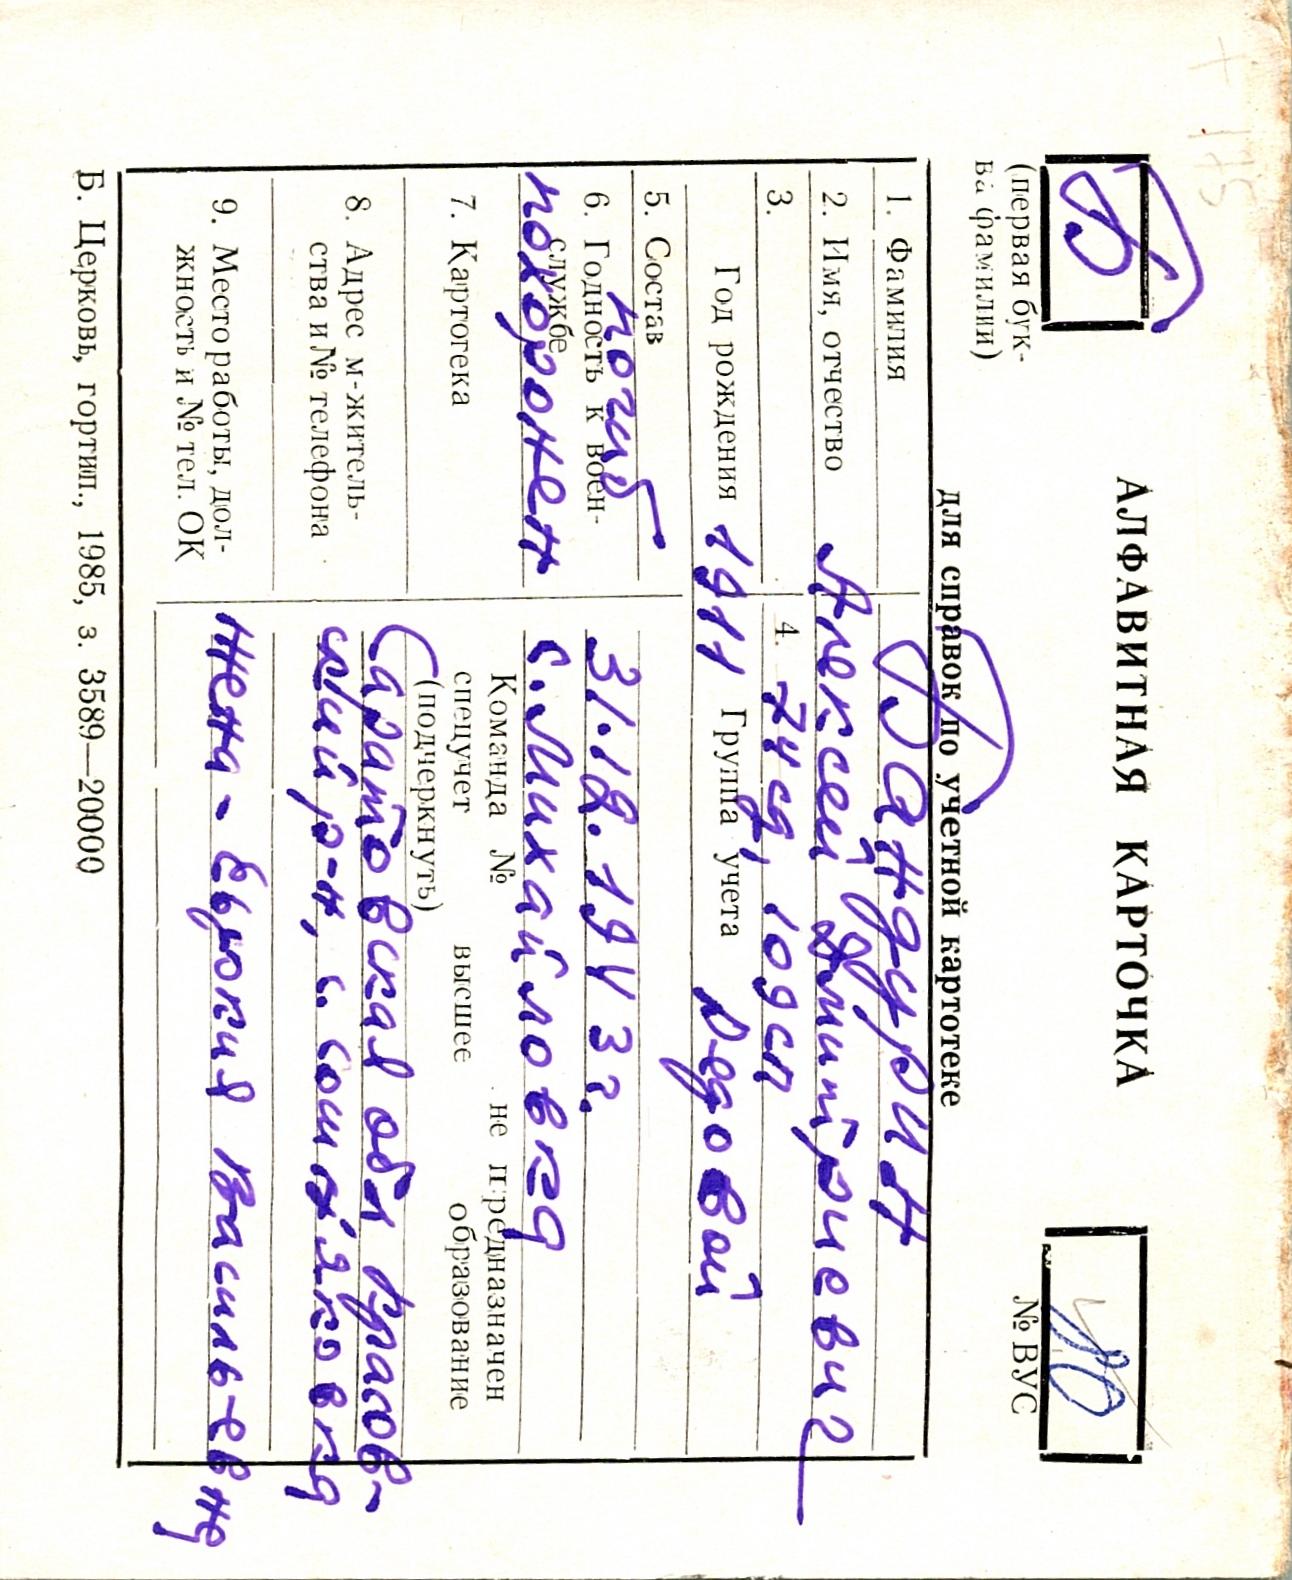 + 175
Б
(первая бук-
ва фамилии)
АЛФАВИТНАЯ КАРТОЧКА
для справок по учетной картотеке
№ ВУС
1. Фамилия Бандурин
2. Имя, отчество Алексей Дмитриевич
3. 4. 74 сд, 109 сп
Год рождения 1911 Группа учета рядовой
5. Состав
погиб 31.12.1943 г.
6. Годность к воен-
службе
похоронен с. Михайловка
Команда № не предназначен
7. Картотека спецучет высшее образование
(подчеркнуть)
8. Адрес м-житель-
ства и № телефона
Саратовская обл
ский р-н, с.
9. Место работы, дол-
жность и № тел. ОК
жена - Евдокия Васильевна
Б. Церковь, гортип., 1985, з. 3589—20000